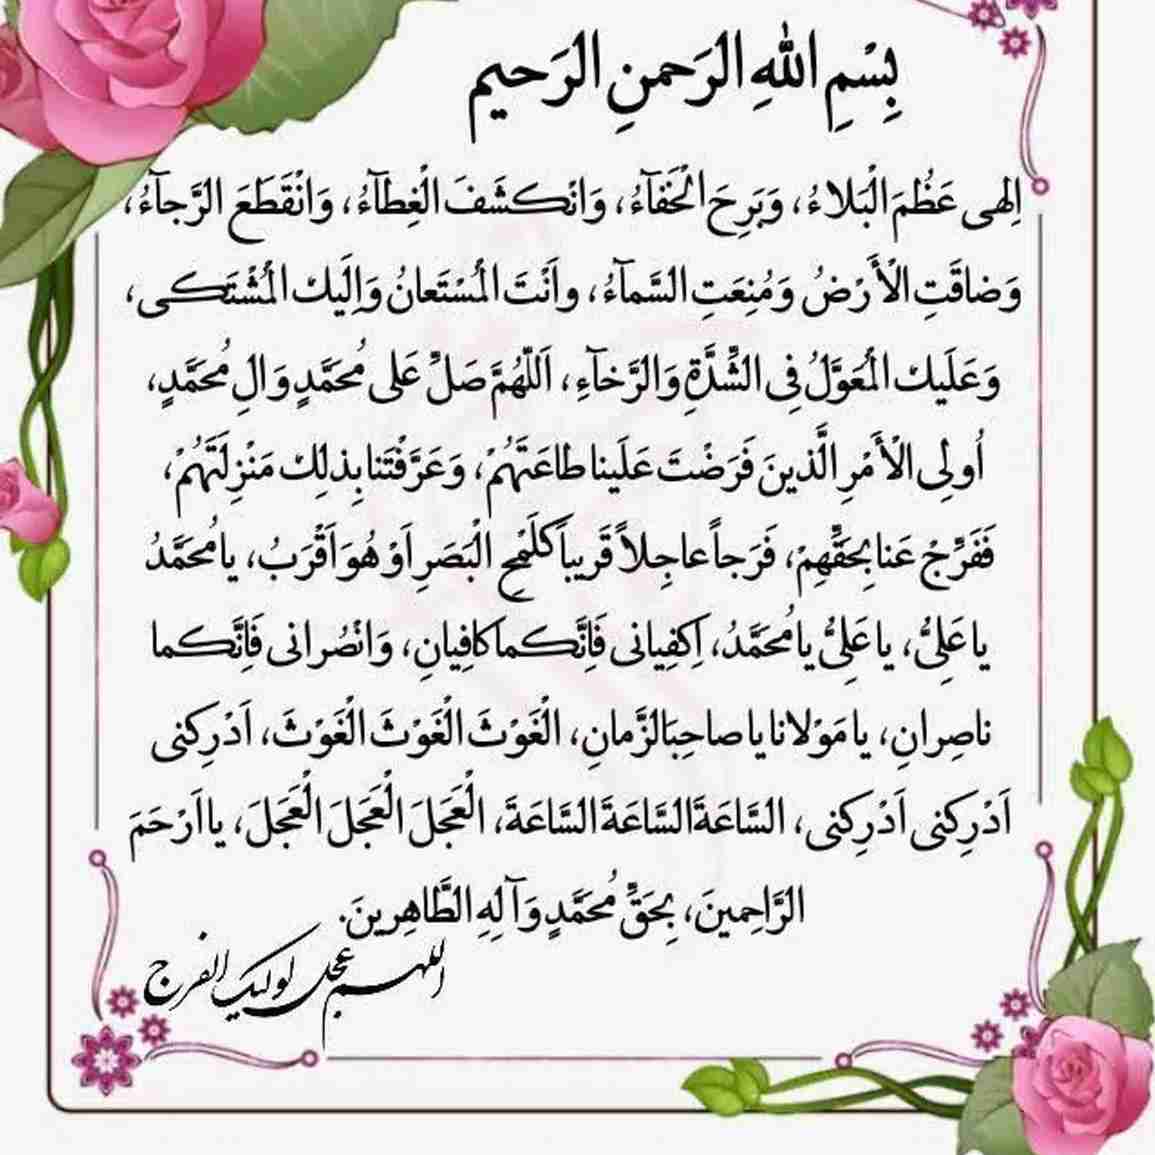 بِسْمِ اللهِ الرَحمنِ الرَحيم
اِلهى عَظُمَ الْبَلاءُ، وَبَرِحَ الْخَفآءُ، وَانْكَشَفَ الْغِطآءُ، وَانْقَطَعَ الرَّجآءُ،
وَضاقَتِ الْأَرْضُ وَمُنِعَتِ السَّمآءُ، واَنْتَ الْمُسْتَعانُ وَاِلَيك الْمُشْتَكى،
وَعَلَيك الْمُعَوَّلُ فِى الشِّدَّةِ وَالرَّخآءِ، اَللّهُمَّ صَلِّ عَلى مُحَمَّدٍ وَ الِ مُحَمَّدٍ،
اُولِى الْأَمْرِ الَّذينَ فَرَضْتَ عَلَينا طاعَتَهُمْ، وَعَرَّفْتَنا بِذلِك مَنْزِلَتَهُمْ،
فَفَرِّجْ عَنا بِحَقِّهِمْ، فَرَجاً عاجِلاً قَريباً كَلَمْحِ الْبَصَرِ اَوْ هُوَ اَقْرَبُ، يا مُحَمَّدُ
يا عَلِىُّ، يا عَلِىُّ يا مُحَمَّدُ، اِكفِيانى فَاِنَّكما كافِيانِ، وَانْصُرانى فَاِنَّكما
ناصِرانِ، يا مَوْلانا يا صاحِبَ الزَّمانِ، الْغَوْثَ الْغَوْثَ الْغَوْثَ، اَدْرِكنى
اَدْرِكنى اَدْرِكنى، السَّاعَةَ السَّاعَةَ السَّاعَةَ، الْعَجَلَ الْعَجَلَ الْعَجَلَ، يا اَرْحَمَ
الرَّاحِمينَ، بِحَقِّ مُحَمَّدٍ وَآلِهِ الطَّاهِرينَ.
اللهم عجل لوليك الفرج